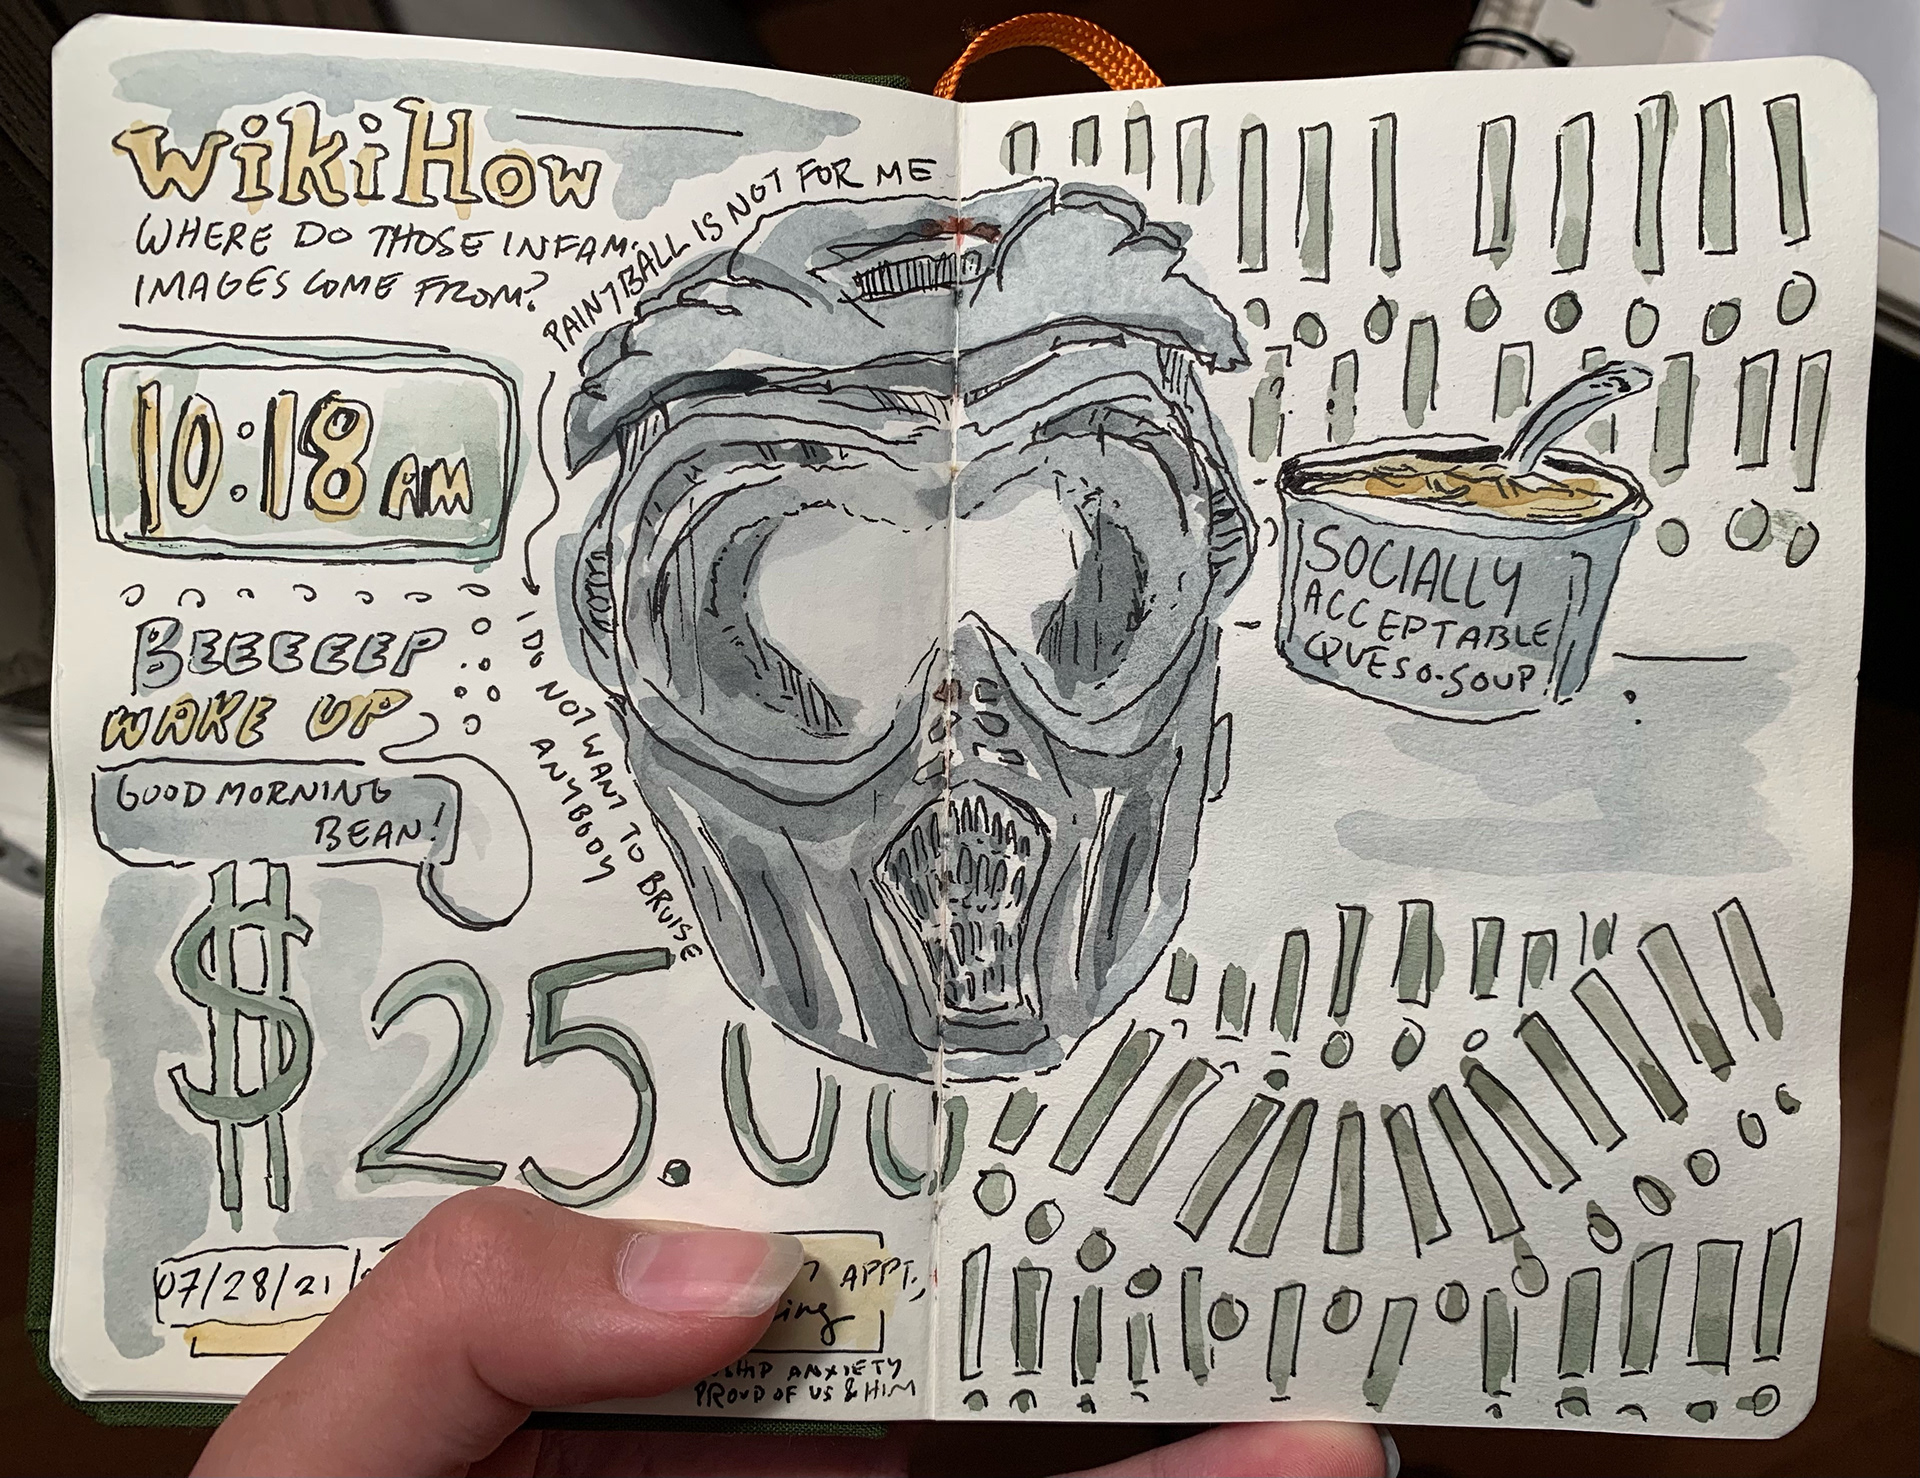 wikiHow
WHERE DO THOSE INFAM.
IMAGES COME FROM?
10:18 AM
BEEEEEP
WAKE UP
GOOD MORNING
BEAN!
$25.00
07/28/21
APPT.,
ing
SHIP ANXIETY
PROUD OF US & HIM
PAINTBALL IS NOT FOR ME
I DO NOT WANT TO BRUISE
ANYBODY
SOCIALLY
ACCEPTABLE
QUESO-SOUP